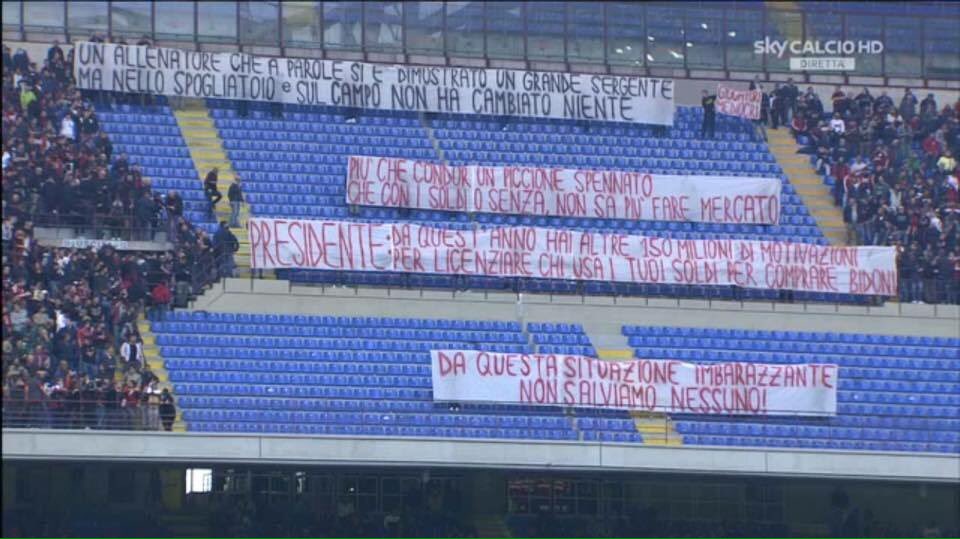 sky CALCIO HD
DIRETTA
UN ALLENATORE CHE A PAROLE SI E' DIMUSTRATO UN GRANDE SERGENTE
MA NELLO SPOGLIATOIO e SUL CAMPO NON HA CAMBIATO NIENTE
GIOCATORI
PIU' CHE CONDOR UN PICCIONE SPENNATO
CHE CON I SOLDI O SENZA, NON SA PIU' FARE MERCATO
PRESIDENTE: DA QUEST'ANNO HAI ALTRE 150 MILIONI DI MOTIVAZIONI
PER LICENZIARE CHI USA I TUOI SOLDI PER COMPRARE BIDONI
DA QUESTA SITUAZIONE IMBARAZZANTE
NON SALVIAMO NESSUNO!